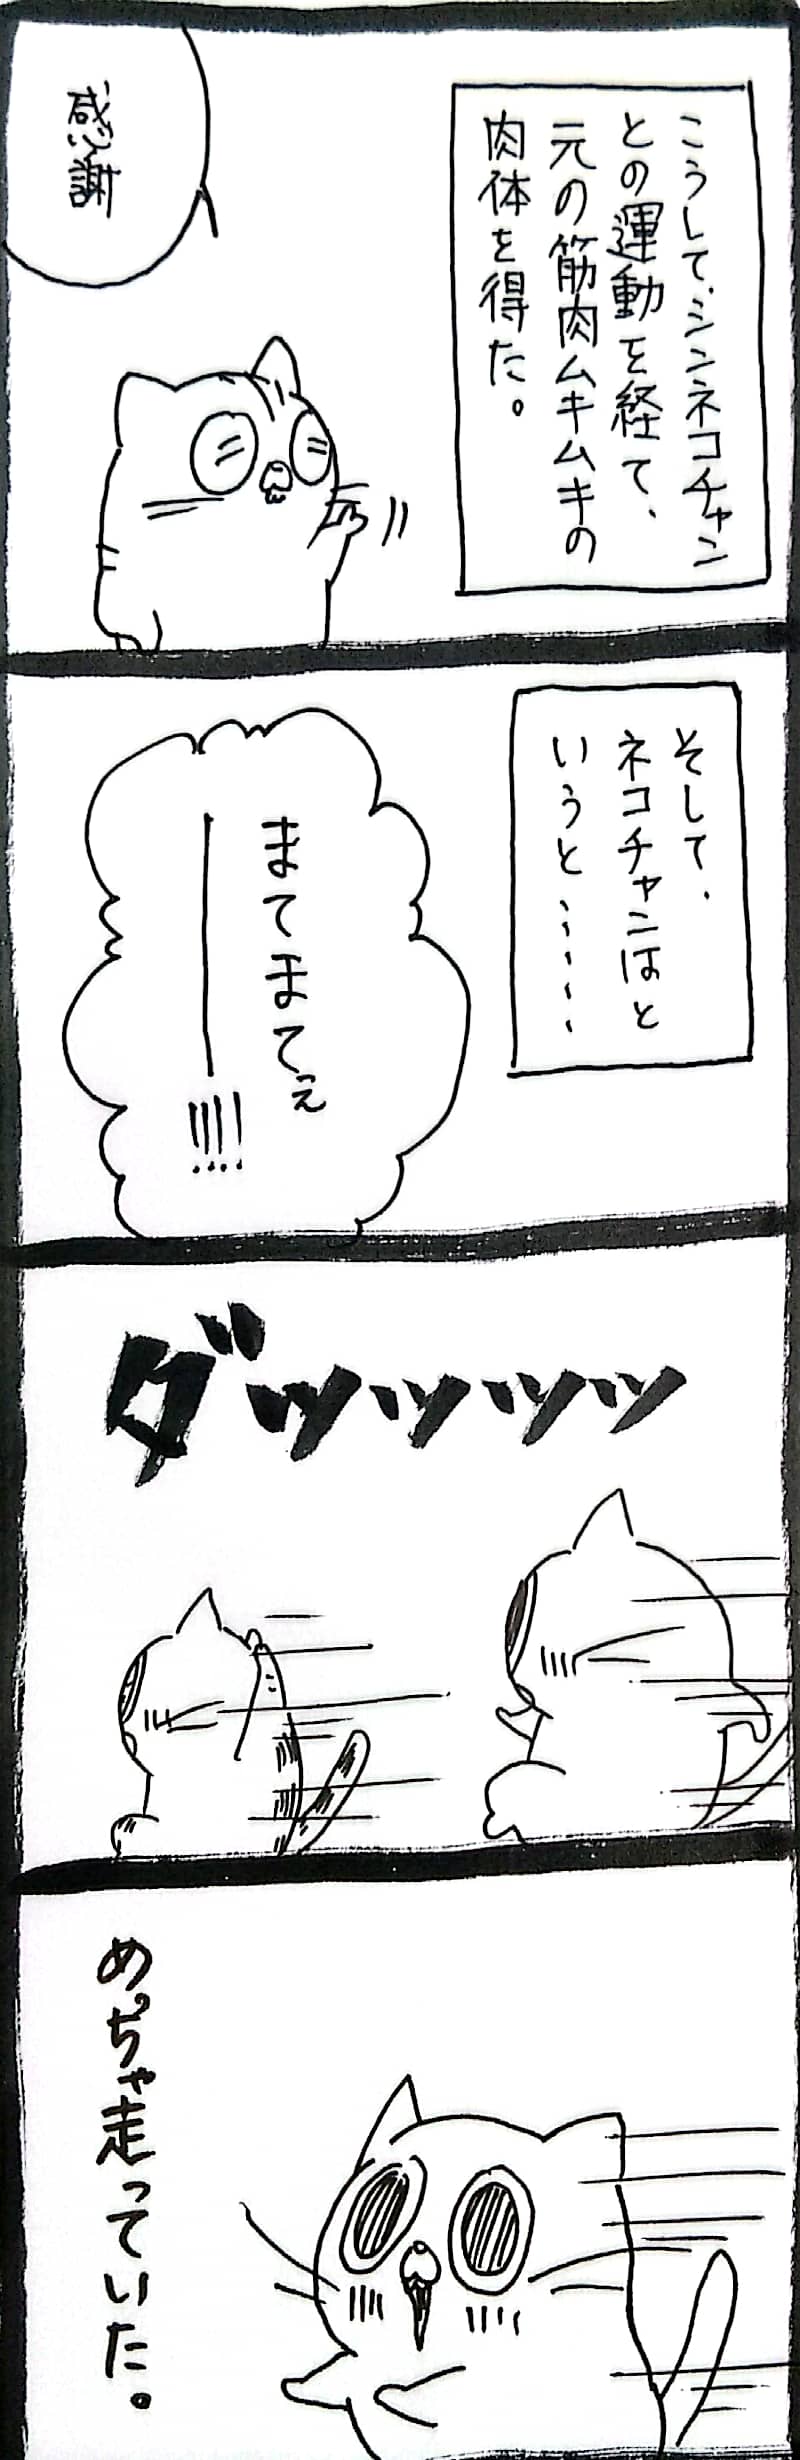 こうして、シンネコチャン
との運動を経て、
元の筋肉ムキムキの
肉体を得た。
感謝
そして、
ネコチャンはと
いうと……
まてまてぇ
ー!!!!
ダッッッッ
めっちゃ走っていた。